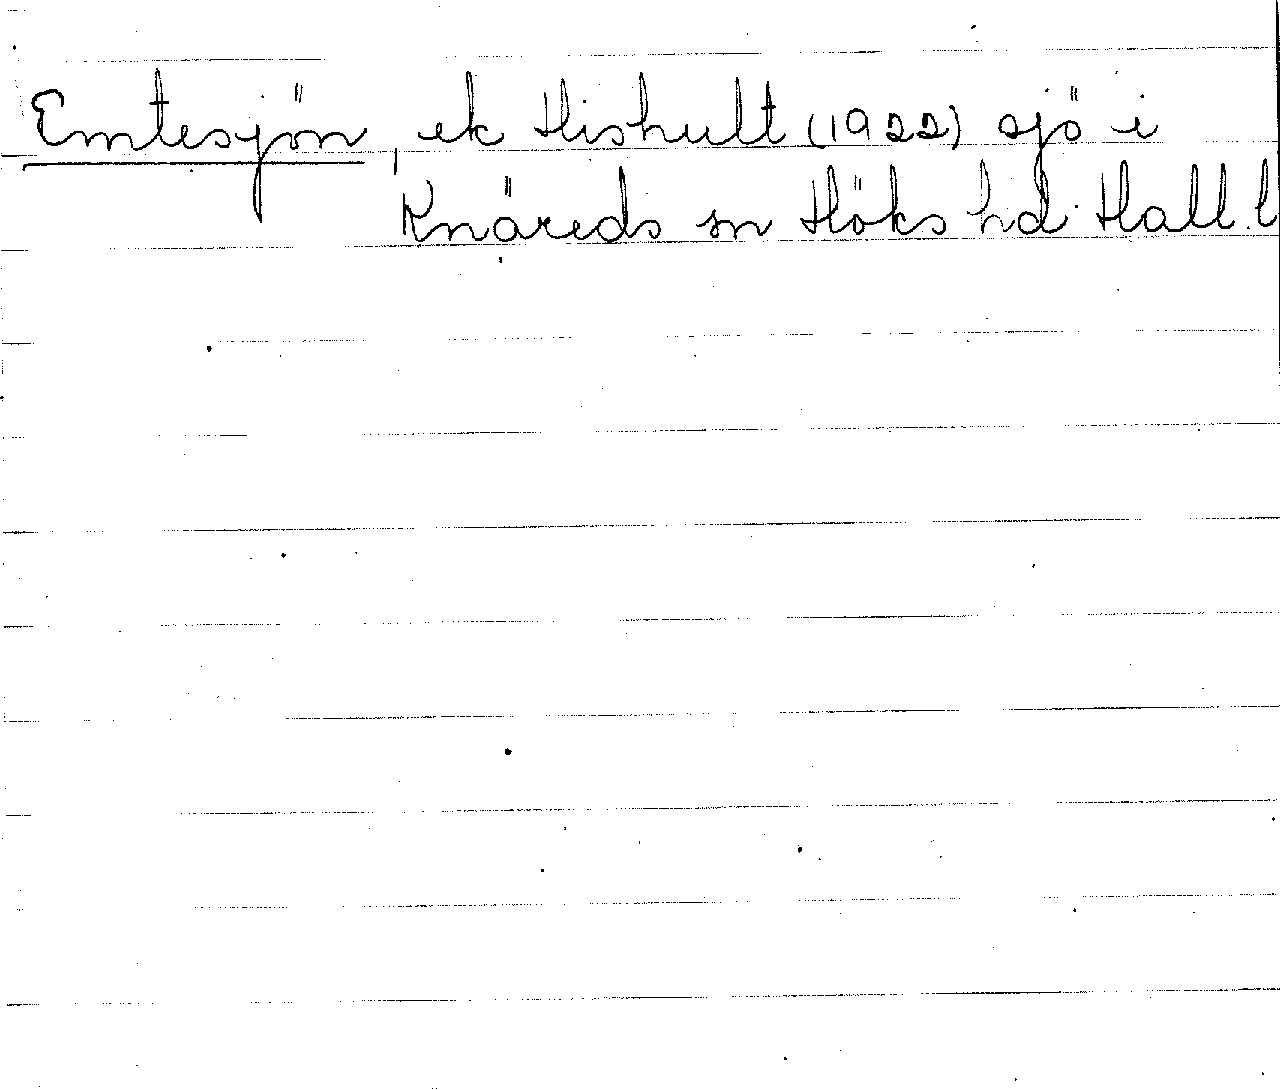 Emtesjön, ek Hishult (1922) sjö i
Knäreds sn Höks hd. Hall. l